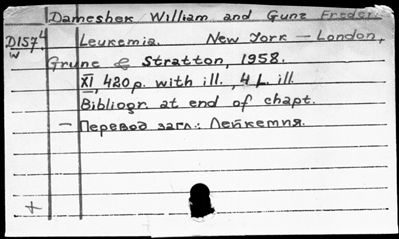 Dameshek William and Gunz Frederi
D157⁴ Leukemia. New York — London,
W Grune & Stratton, 1958.
XI, 420 p. with ill., 4 L. ill.
Bibliogr. at end of chapt.
— Перевод загл.: Лейкемия.
+